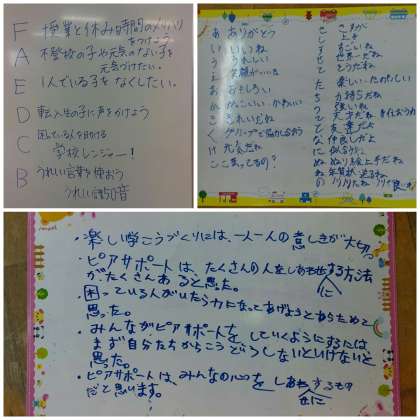 F 授業と休み時間のメリハリをつけよう
A 不登校の子や元気のない子を
元気づけたい。
E 1人でいる子をなくしたい。
D 転入生の子に声をかけよう
C 困っている人を助ける
学校レンジャー!
B うれしい言葉を使おう
うれしい語50音
あ ありがとう
い いいね
う うれしい
え 笑顔がいいね
お おもしろい
か かっこいい・かわいい
き きれいだね
く グループで協力しよう
け 元気だね
こ
さ さすが
し 上手
す すごいね
せ 世界一だね
そ そうだね
た 楽しい・たのもしい
ち 力持ちだね
つ 強いね
て 天才だね
と 友達だよ
な 仲良しだよ
に 似
ぬ ぬり絵上手だね
ね 年賀状送るね
の
・楽しい学こうづくりには、一人一人の意しきが大切
・ピアサポートは、たくさんの人をしあわせにする方法
がたくさんあると思った。
・困っている人がいたら力になってあげようとあらためて
思った。
・みんながピアサポートをしていくようにするには
まず自分たちからこうどうしないといけないと
思った。
・ピアサポートは、みんなの心をしあわせにするもの
だと思います。